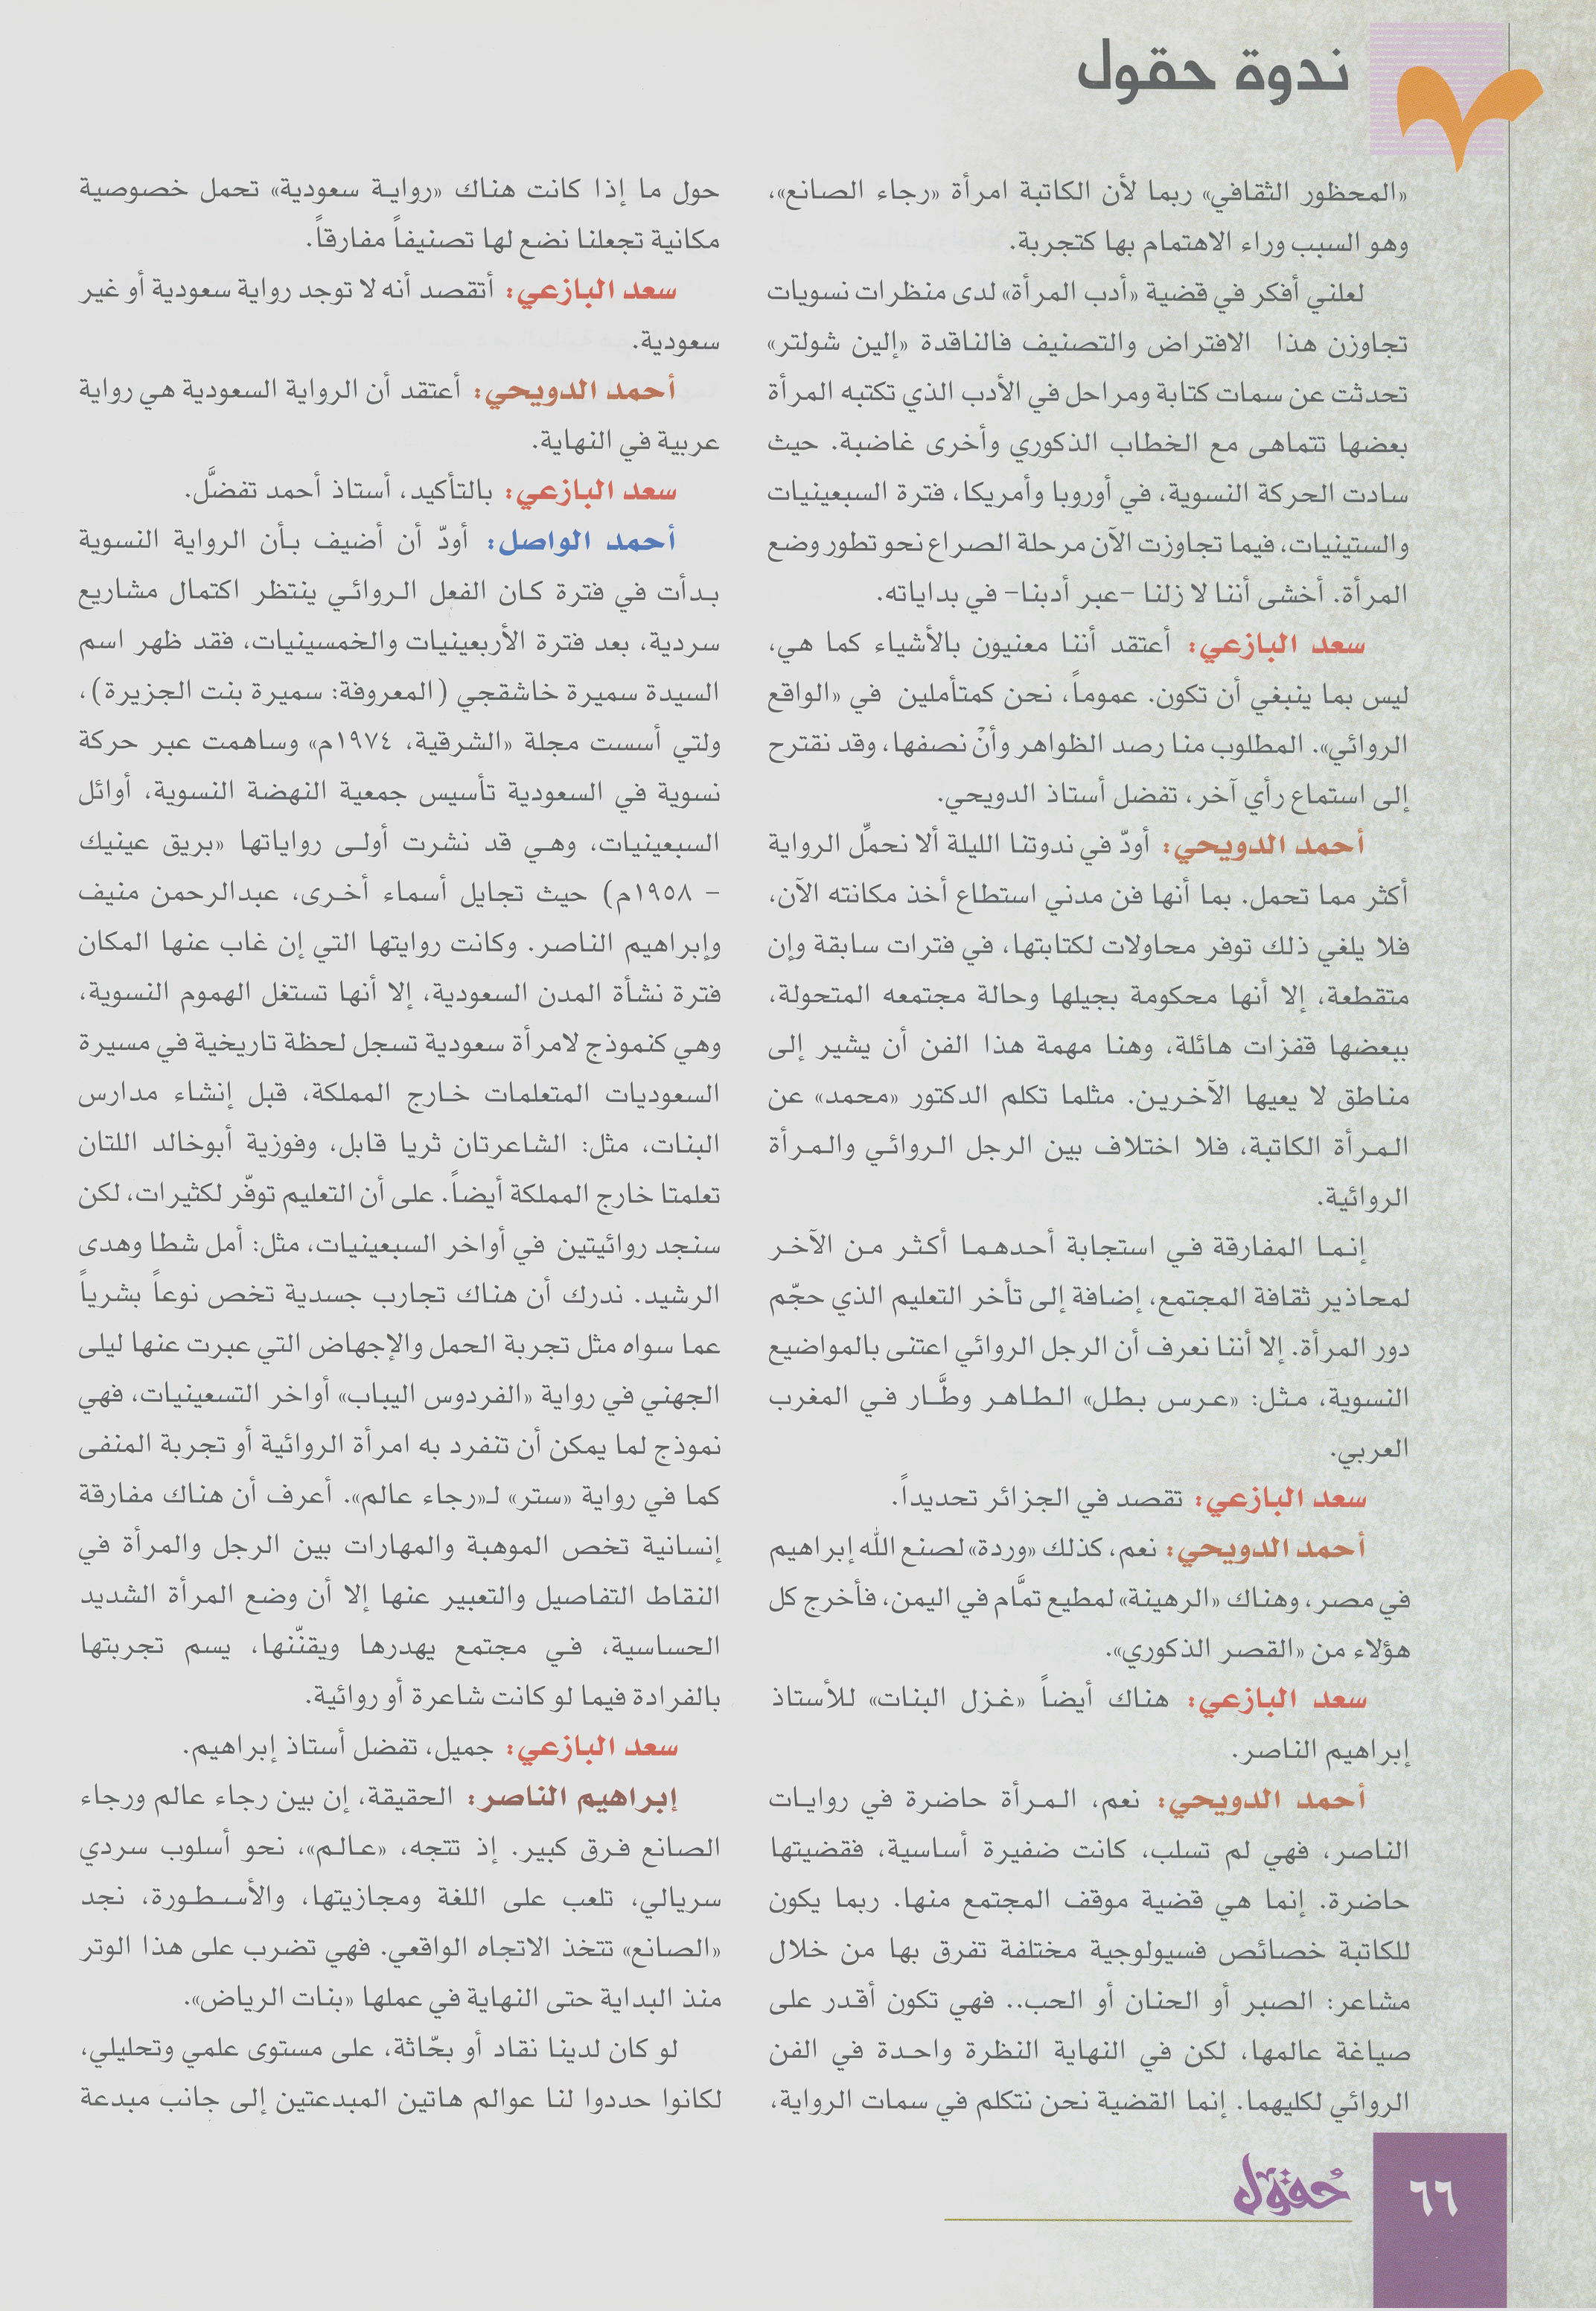 ندوة حقول
«المحظور الثقافي» ربما لأن الكاتبة امرأة «رجاء الصانع»،
وهو السبب وراء الاهتمام بها كتجربة.
لعلني أفكر في قضية «أدب المرأة» لدى منظرات نسويات
تجاوزن هذا الافتراض والتصنيف فالناقدة «إلين شولتر»
تحدثت عن سمات كتابة ومراحل في الأدب الذي تكتبه المرأة
بعضها تتماهى مع الخطاب الذكوري وأخرى غاضبة. حيث
سادت الحركة النسوية، في أوروبا وأمريكا، فترة السبعينيات
والستينيات، فيما تجاوزت الآن مرحلة الصراع نحو تطور وضع
المرأة. أخشى أننا لا زلنا -عبر أدبنا- في بداياته.
سعد البازعي: أعتقد أننا معنيون بالأشياء كما هي،
ليس بما ينبغي أن تكون. عموماً، نحن كمتأملين في «الواقع
الروائي». المطلوب منا رصد الظواهر وأنْ نصفها، وقد نقترح
إلى استماع رأي آخر، تفضل أستاذ الدويحي.
أحمد الدويحي: أودّ في ندوتنا الليلة ألا نحمِّل الرواية
أكثر مما تحمل. بما أنها فن مدني استطاع أخذ مكانته الآن،
فلا يلغي ذلك توفر محاولات لكتابتها، في فترات سابقة وإن
متقطعة، إلا أنها محكومة بجيلها وحالة مجتمعه المتحولة،
ببعضها قفزات هائلة، وهنا مهمة هذا الفن أن يشير إلى
مناطق لا يعيها الآخرين. مثلما تكلم الدكتور «محمد» عن
المرأة الكاتبة، فلا اختلاف بين الرجل الروائي والمرأة
الروائية.
إنما المفارقة في استجابة أحدهما أكثر من الآخر
لمحاذير ثقافة المجتمع، إضافة إلى تأخر التعليم الذي حجّم
دور المرأة. إلا أننا نعرف أن الرجل الروائي اعتنى بالمواضيع
النسوية، مثل: «عرس بطل» الطاهر وطَّار في المغرب
العربي.
سعد البازعي: تقصد في الجزائر تحديداً.
أحمد الدويحي: نعم، كذلك «وردة» لصنع الله إبراهيم
في مصر، وهناك «الرهينة» لمطيع تمَّام في اليمن، فأخرج كل
هؤلاء من «القصر الذكوري».
سعد البازعي: هناك أيضاً «غزل البنات» للأستاذ
إبراهيم الناصر.
أحمد الدويحي: نعم، المرأة حاضرة في روايات
الناصر، فهي لم تسلب، كانت ضفيرة أساسية، فقضيتها
حاضرة. إنما هي قضية موقف المجتمع منها. ربما يكون
للكاتبة خصائص فسيولوجية مختلفة تفرق بها من خلال
مشاعر: الصبر أو الحنان أو الحب.. فهي تكون أقدر على
صياغة عالمها، لكن في النهاية النظرة واحدة في الفن
الروائي لكليهما. إنما القضية نحن نتكلم في سمات الرواية،
حول ما إذا كانت هناك «رواية سعودية» تحمل خصوصية
مكانية تجعلنا نضع لها تصنيفاً مفارقاً.
سعد البازعي: أتقصد أنه لا توجد رواية سعودية أو غير
سعودية.
أحمد الدويحي: أعتقد أن الرواية السعودية هي رواية
عربية في النهاية.
سعد البازعي: بالتأكيد، أستاذ أحمد تفضلَّ.
أحمد الواصل: أودّ أن أضيف بأن الرواية النسوية
بدأت في فترة كان الفعل الروائي ينتظر اكتمال مشاريع
سردية، بعد فترة الأربعينيات والخمسينيات، فقد ظهر اسم
السيدة سميرة خاشقجي (المعروفة: سميرة بنت الجزيرة)،
ولتي أسست مجلة «الشرقية، ١٩٧٤م» وساهمت عبر حركة
نسوية في السعودية تأسيس جمعية النهضة النسوية، أوائل
السبعينيات، وهي قد نشرت أولى رواياتها «بريق عينيك
- ١٩٥٨م) حيث تجايل أسماء أخرى، عبدالرحمن منيف
وإبراهيم الناصر. وكانت روايتها التي إن غاب عنها المكان
فترة نشأة المدن السعودية، إلا أنها تستغل الهموم النسوية،
وهي كنموذج لامرأة سعودية تسجل لحظة تاريخية في مسيرة
السعوديات المتعلمات خارج المملكة، قبل إنشاء مدارس
البنات، مثل: الشاعرتان ثريا قابل، وفوزية أبوخالد اللتان
تعلمتا خارج المملكة أيضاً. على أن التعليم توفّر لكثيرات، لكن
سنجد روائيتين في أواخر السبعينيات، مثل: أمل شطا وهدى
الرشيد. ندرك أن هناك تجارب جسدية تخص نوعاً بشرياً
عما سواه مثل تجربة الحمل والإجهاض التي عبرت عنها ليلى
الجهني في رواية «الفردوس اليباب» أواخر التسعينيات، فهي
نموذج لما يمكن أن تنفرد به امرأة الروائية أو تجربة المنفى
كما في رواية «ستر» لـ«رجاء عالم». أعرف أن هناك مفارقة
إنسانية تخص الموهبة والمهارات بين الرجل والمرأة في
النقاط التفاصيل والتعبير عنها إلا أن وضع المرأة الشديد
الحساسية، في مجتمع يهدرها ويقنّنها، يسم تجربتها
بالفرادة فيما لو كانت شاعرة أو روائية.
سعد البازعي: جميل، تفضل أستاذ إبراهيم.
إبراهيم الناصر: الحقيقة، إن بين رجاء عالم ورجاء
الصانع فرق كبير. إذ تتجه، «عالم»، نحو أسلوب سردي
سريالي، تلعب على اللغة ومجازيتها، والأسطورة، نجد
«الصانع» تتخذ الاتجاه الواقعي. فهي تضرب على هذا الوتر
منذ البداية حتى النهاية في عملها «بنات الرياض».
لو كان لدينا نقاد أو بحّاثة، على مستوى علمي وتحليلي،
لكانوا حددوا لنا عوالم هاتين المبدعتين إلى جانب مبدعة
حُقول
٦٦